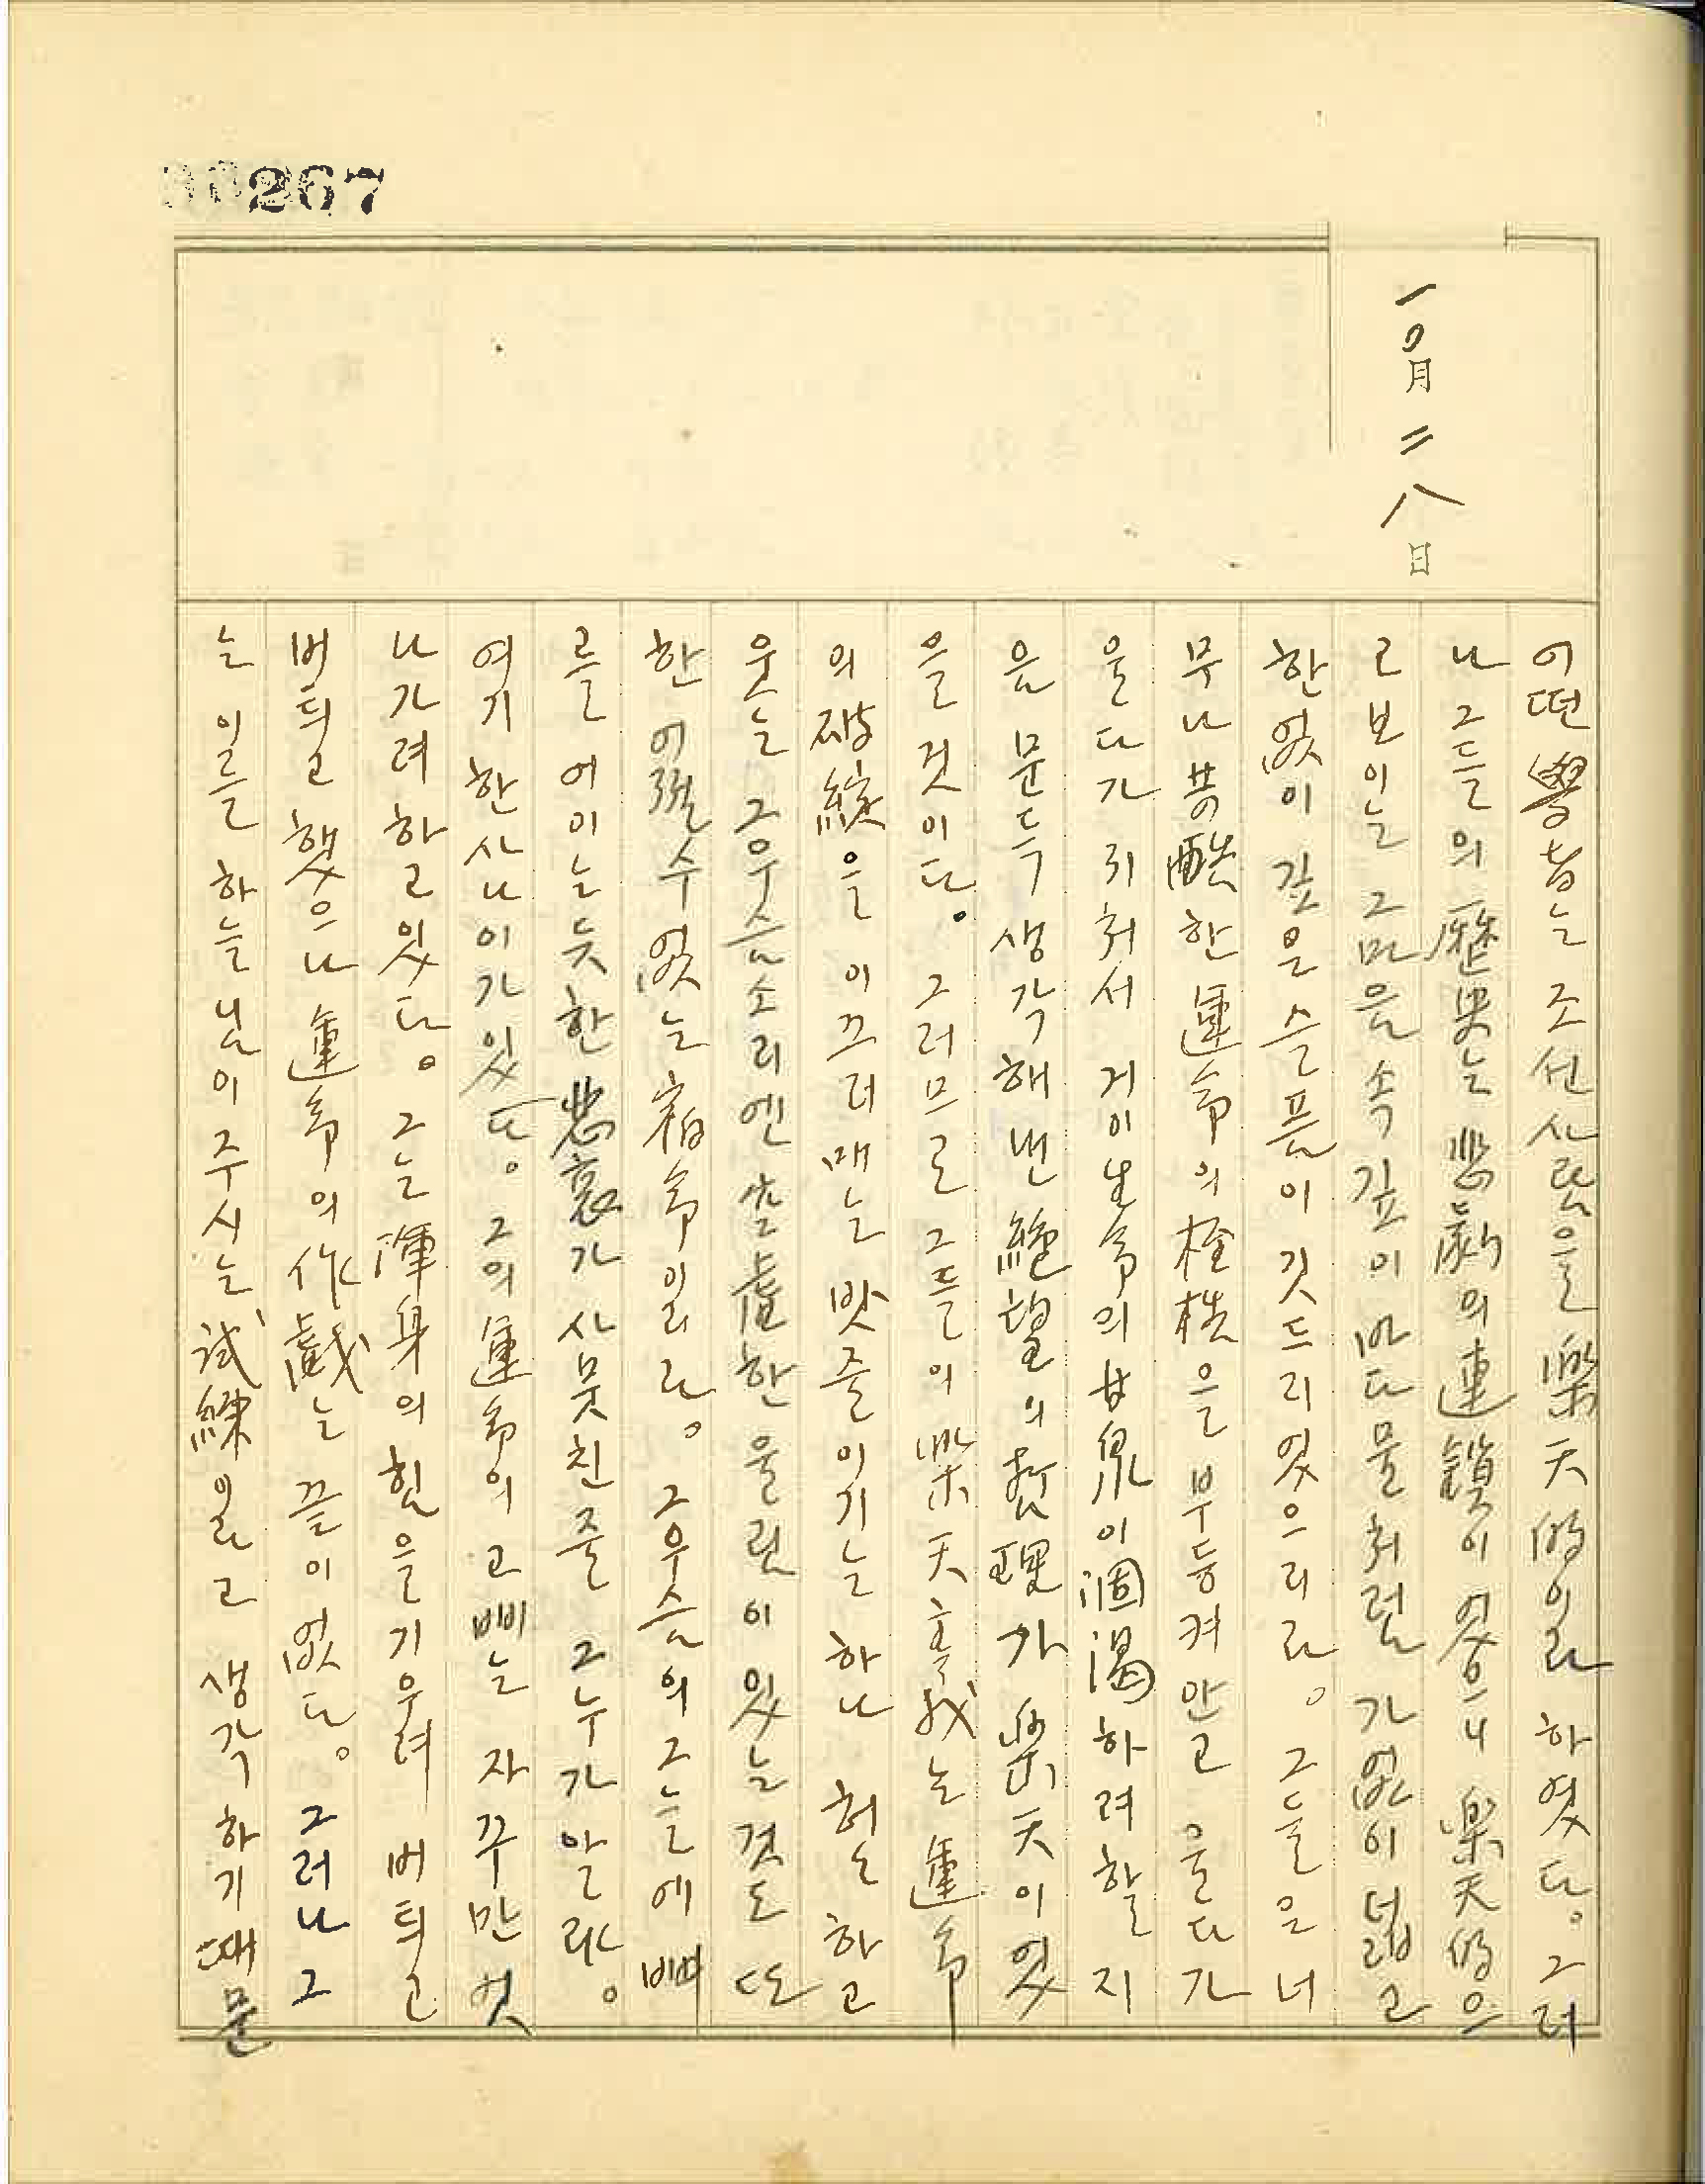 00267
一〇月 二八日
어떤 學者는 조선사람을 樂天的이라 하였다。 그러
나 그들의 歷史는 悲劇의 連鎖이 였으니 樂天的으
로 보이는 그 마음 속 깊이 바다물 처럼 가없이 넓고
한없이 깊은 슬픔이 깃드리 였으리라。 그들은 너
무나 苛酷한 運命의 桎梏을 부등켜 안고 울다가
울다가 지처서 게이 生命의 甘泉이 涸渴하려 할 지
음 문득 생각해 낸 絶望의 哲理가 樂天이 였
을 것이다。 그러므로 그들의 樂天主義는 運命
의 破綻을 이끄러 매는 밧줄이기는 하나 허는 하고
웃는 그 우슴소리엔 空虛한 울림이 있는 것도 또
한 어찌 수 없는 宿命이리라。 그 우슴의 그늘에 뼈
를 에이는 듯한 悲哀가 사뭇친 줄 그 누가 알랴。
여기 한 사나이가 있다。 그의 運命의 고삐는 자꾸만 엇
나가려 하고 있다。 그는 渾身의 힘을 기우려 버티고
버티고 했으나 運命의 作戱는 끝이 없다。 그러나 그
는 이를 하늘님이 주시는 試練이라고 생각하기 때문